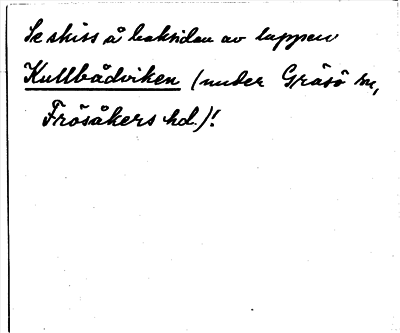 Se skiss å baksidan av lappen
Kullbådviken (under Gräsö sn,
Frösåkers hd.)!